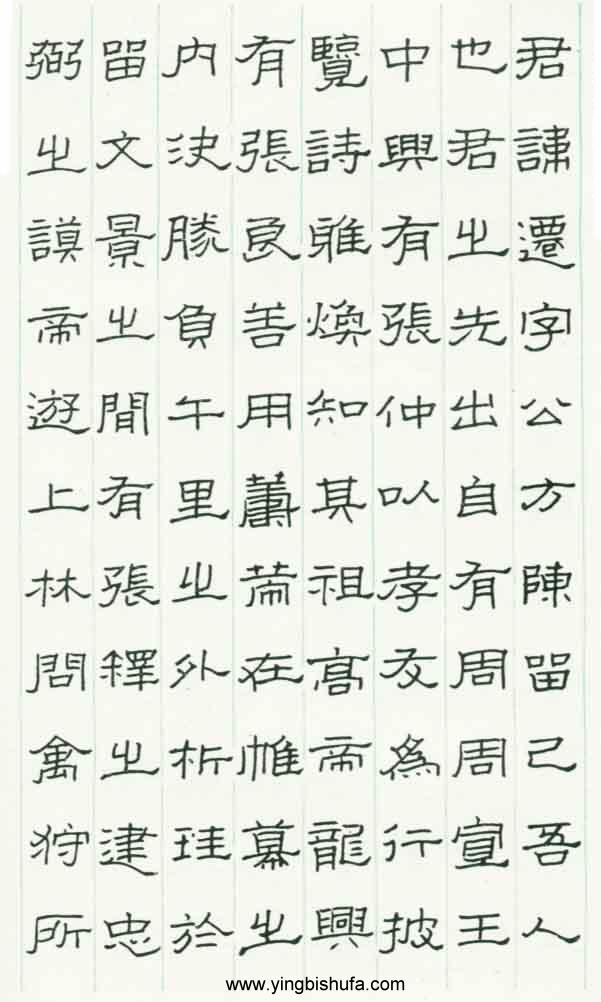 君諱遷字公方陳留己吾人
也君之先出自有周周宣王
中興有張仲以孝友為行披
覽詩雅煥知其祖高帝龍興
有張良善用籌策在帷幕之
內決勝負午里之外析珪於
留文景之間有張釋之建忠
弼之謨帝遊上林問禽狩所
www.yingbishufa.com